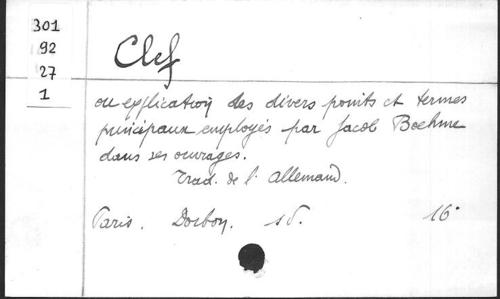 301
92
27
1
Clef
ou explication des divers points et termes
principaux employés par Jacob Boehme
dans ses ouvrages.
Trad. de l'Allemand.
Paris. Dorbon. s d. 16°